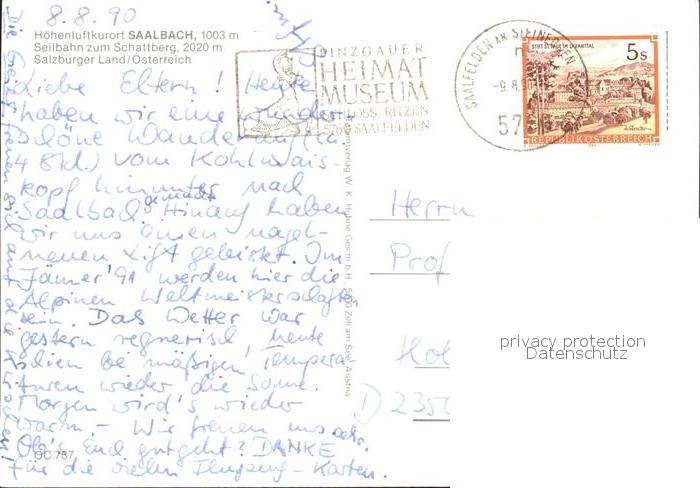 8.8.90
Höhenluftkurort SAALBACH, 1003 m
Seilbahn zum Schattberg, 2020 m
Salzburger Land/Österreich
Liebe Eltern! Heute
haben wir eine wunder-
schöne Wanderung (ca
4 Std.) vom Kohlmais-
kopf hinunter nach
Saalbach gemacht. Hinauf haben
wir uns einen nagel-
neuen Lift geleistet. Im
Jänner '91 werden hier die
Alpinen Weltmeisterschaften
sein. Das Wetter war
gestern regnerisch, heute
schien bei mäßigen Tempera-
turen wieder die Sonne.
Morgen wird's wieder
warm. - Wir freuen uns sehr.
Ob's Euch gut geht? DANKE
für die vielen Flugzeug-Karten.
OC 737
PINZGAUER
HEIMAT
MUSEUM
SCHLOSS RITZEN
5760 SAALFELDEN
SAALFELDEN AM STEINERNEN
-9.8.90
57
STIFT ST. PAUL IM LAVANTTAL
5 S
REPUBLIK ÖSTERREICH
W. K. Hübne Ges.m.b.H. 5700 Zell am See, Austria
Herrn
Prof
D 2350
privacy protection
Datenschutz